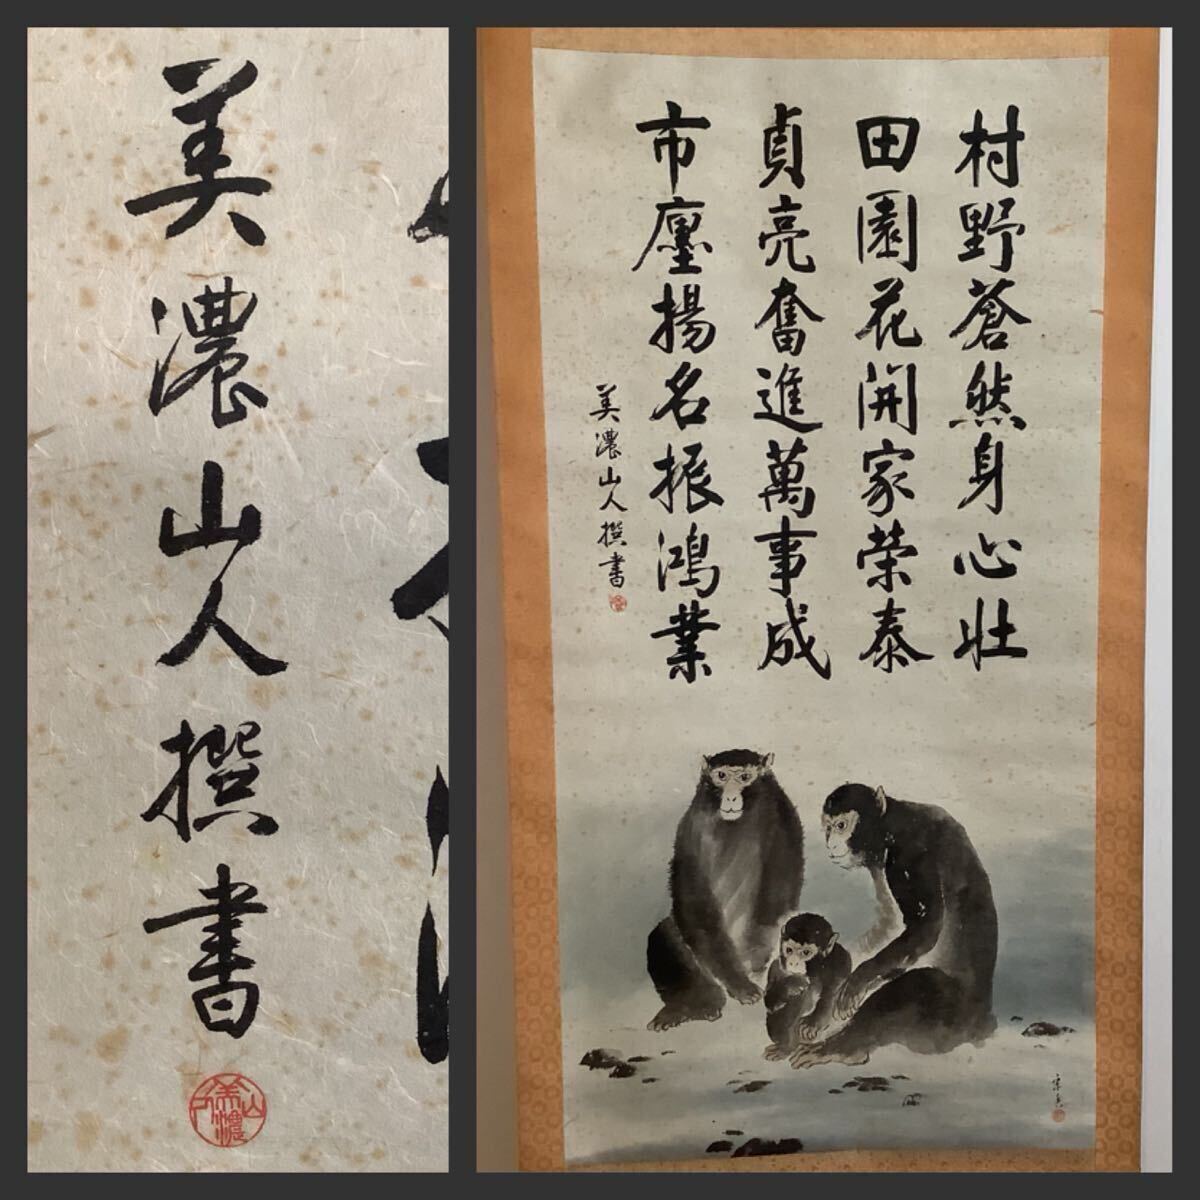 美濃山人撰書
美濃山人
村野蒼然身心壮
田園花開家荣泰
貞亮奮進萬事成
市廛揚名振鴻業
美濃山人撰書